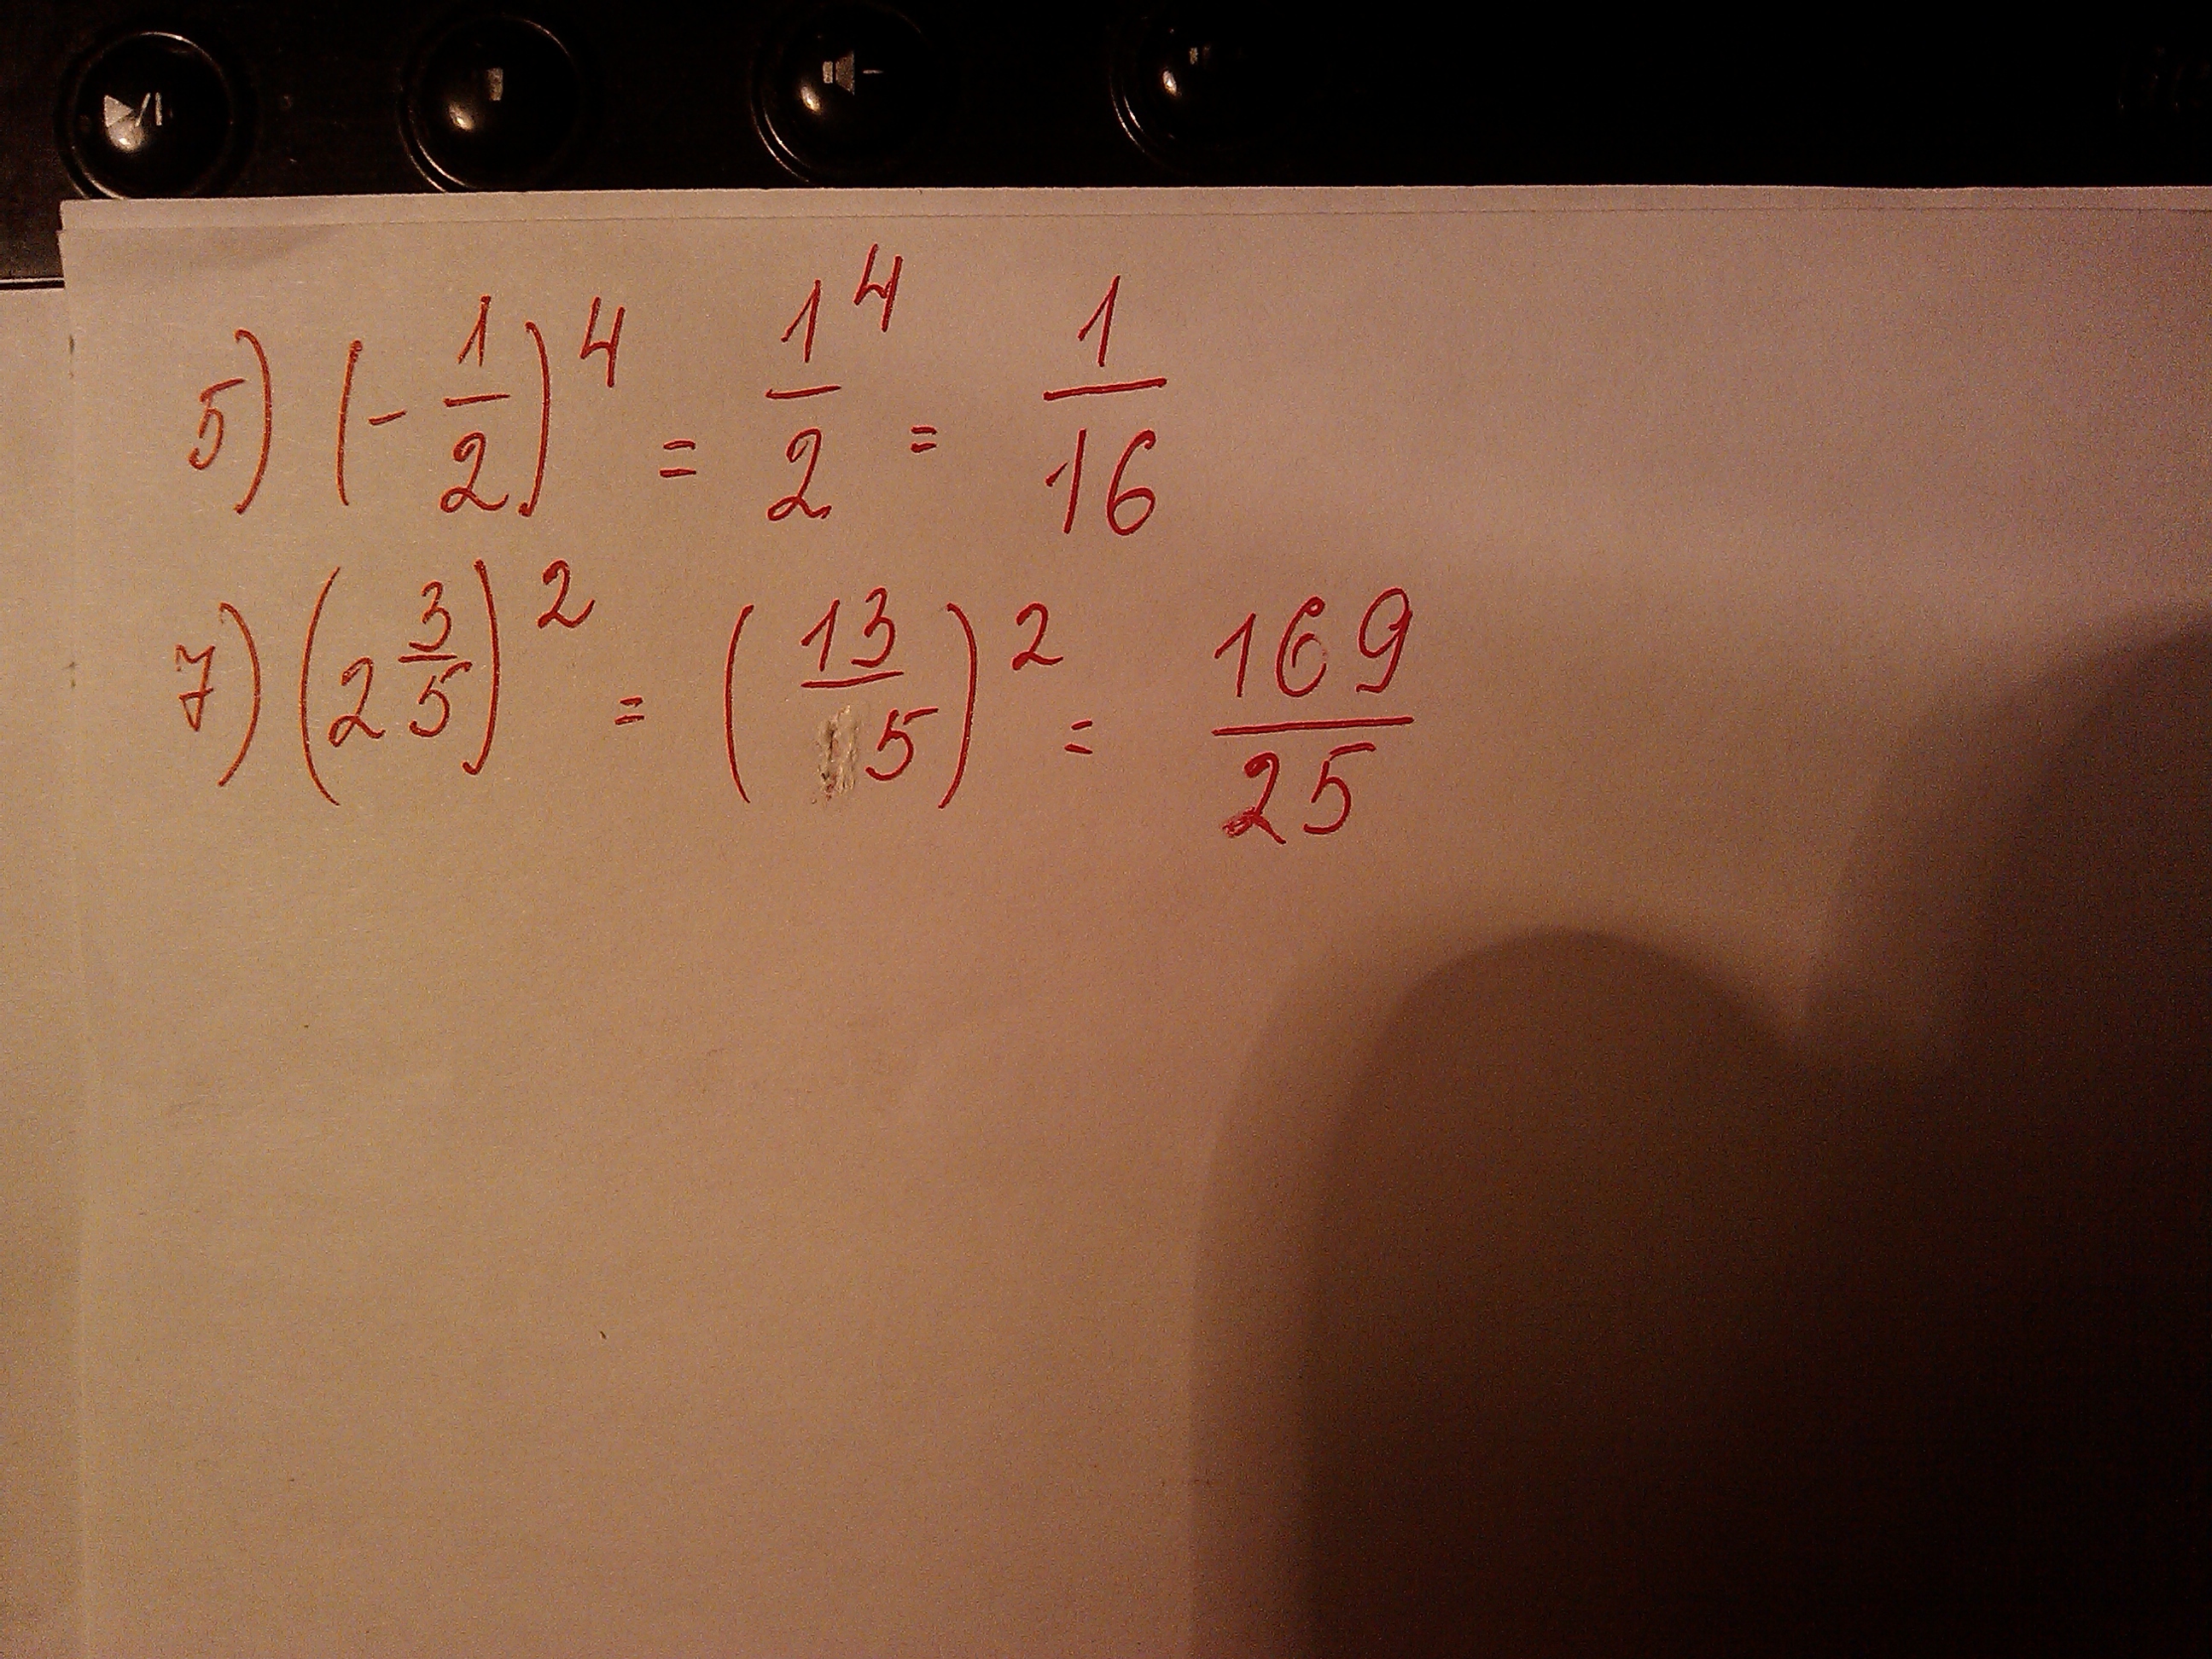 5) (-1/2)^4 = 1^4/2 = 1/16
7) (2 3/5)^2 = (13/5)^2 = 169/25